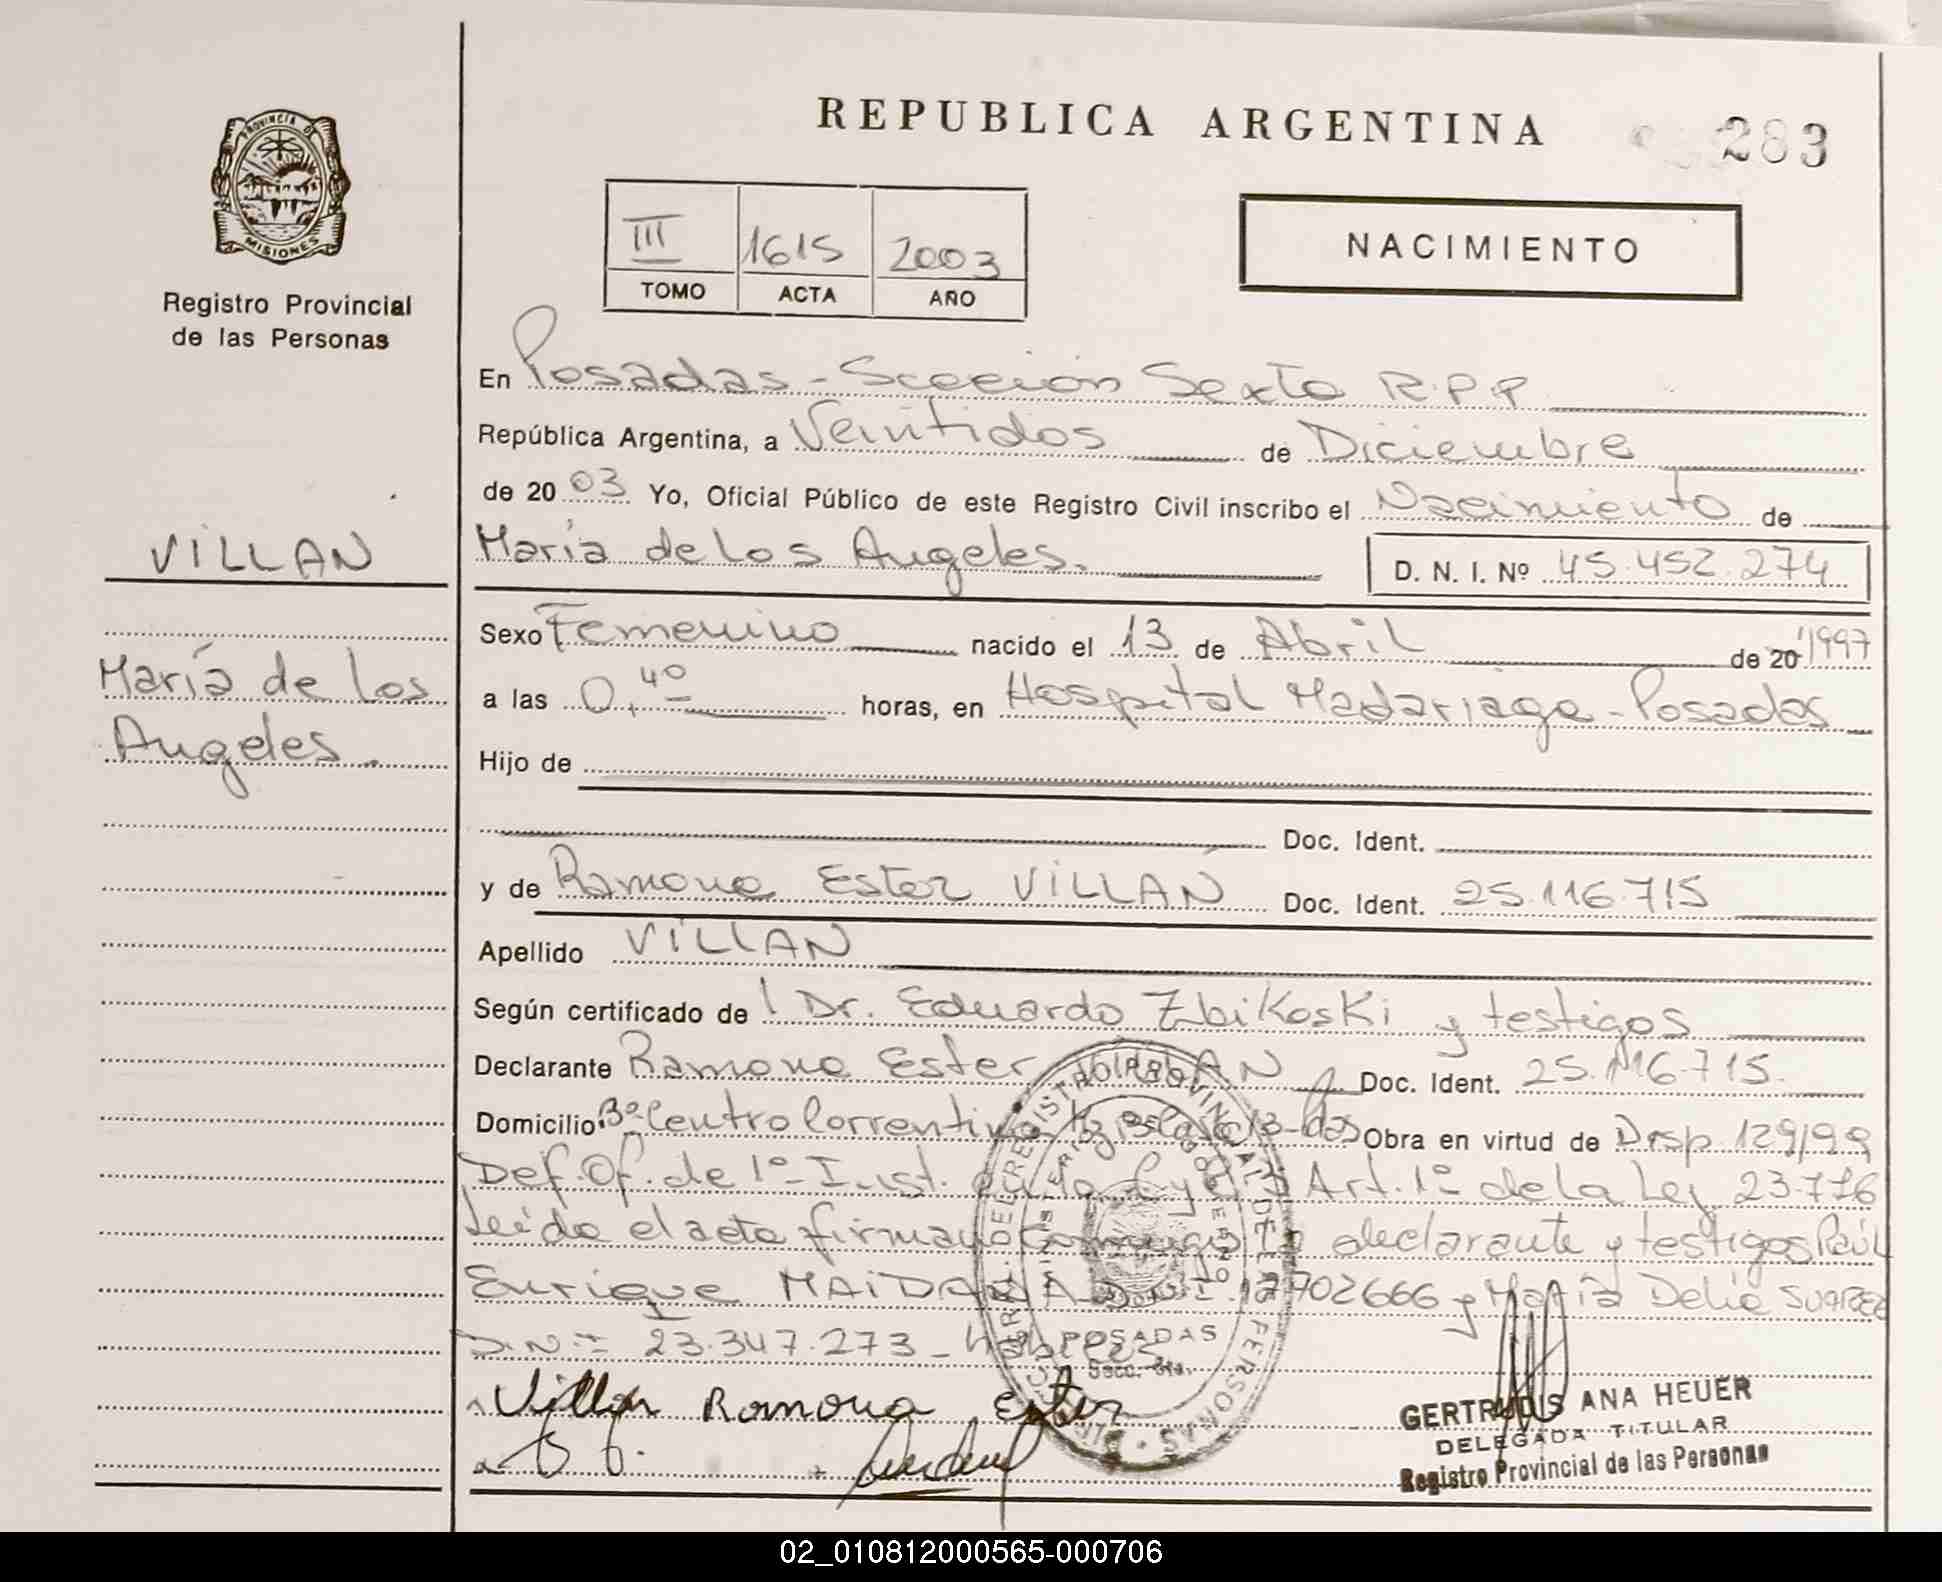 REPUBLICA ARGENTINA
283
PROVINCIA DE
MISIONES
Registro Provincial
de las Personas
III 1615 2003
TOMO ACTA AÑO
NACIMIENTO
En Posadas - Sección Sexta R.P.P
República Argentina, a Veintidos de Diciembre
de 20 03 Yo, Oficial Público de este Registro Civil inscribo el Nacimiento de
María de Los Angeles.
D. N. I. Nº 45.452.274
VILLAN
María de los
Angeles.
Sexo Femenino nacido el 13 de Abril de 20 1997
a las 0,40 horas, en Hospital Madariaga - Posadas
Hijo de
Doc. Ident.
y de Ramona Ester VILLAN Doc. Ident. 25.116.715
Apellido VILLAN
Según certificado de l Dr. Eduardo Zbikoski y testigos
Declarante Ramona Ester Doc. Ident. 25.116.715.
Domicilio Bº Centro Correntino Obra en virtud de Disp 129/99
Def. Of. de 1º Inst. Art. 1º de la Ley 23.776
Leída el acta firman conmigo la declarante y testigos Raúl
Enrique 702666 y María Delia SUAREZ
D.N.I. 23.347.273 - hábiles
POSADAS
Secc. 6ta.
Villan Ramona Ester
GERTRUDIS ANA HEUER
DELEGADA TITULAR
Registro Provincial de las Personas
02_010812000565-000706